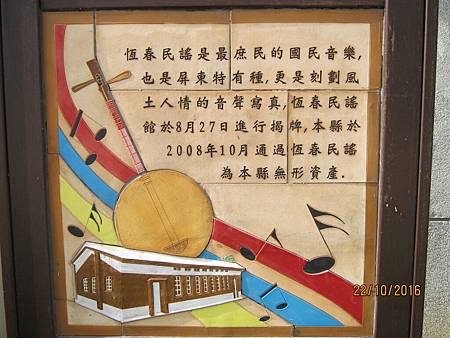 恆春民謠是最庶民的國民音樂,
也是屏東特有種,更是刻劃風
土人情的音聲寫真,恆春民謠
館於8月27日進行揭牌,本縣於
2008年10月通過恆春民謠
為本縣無形資產.
22/10/2016